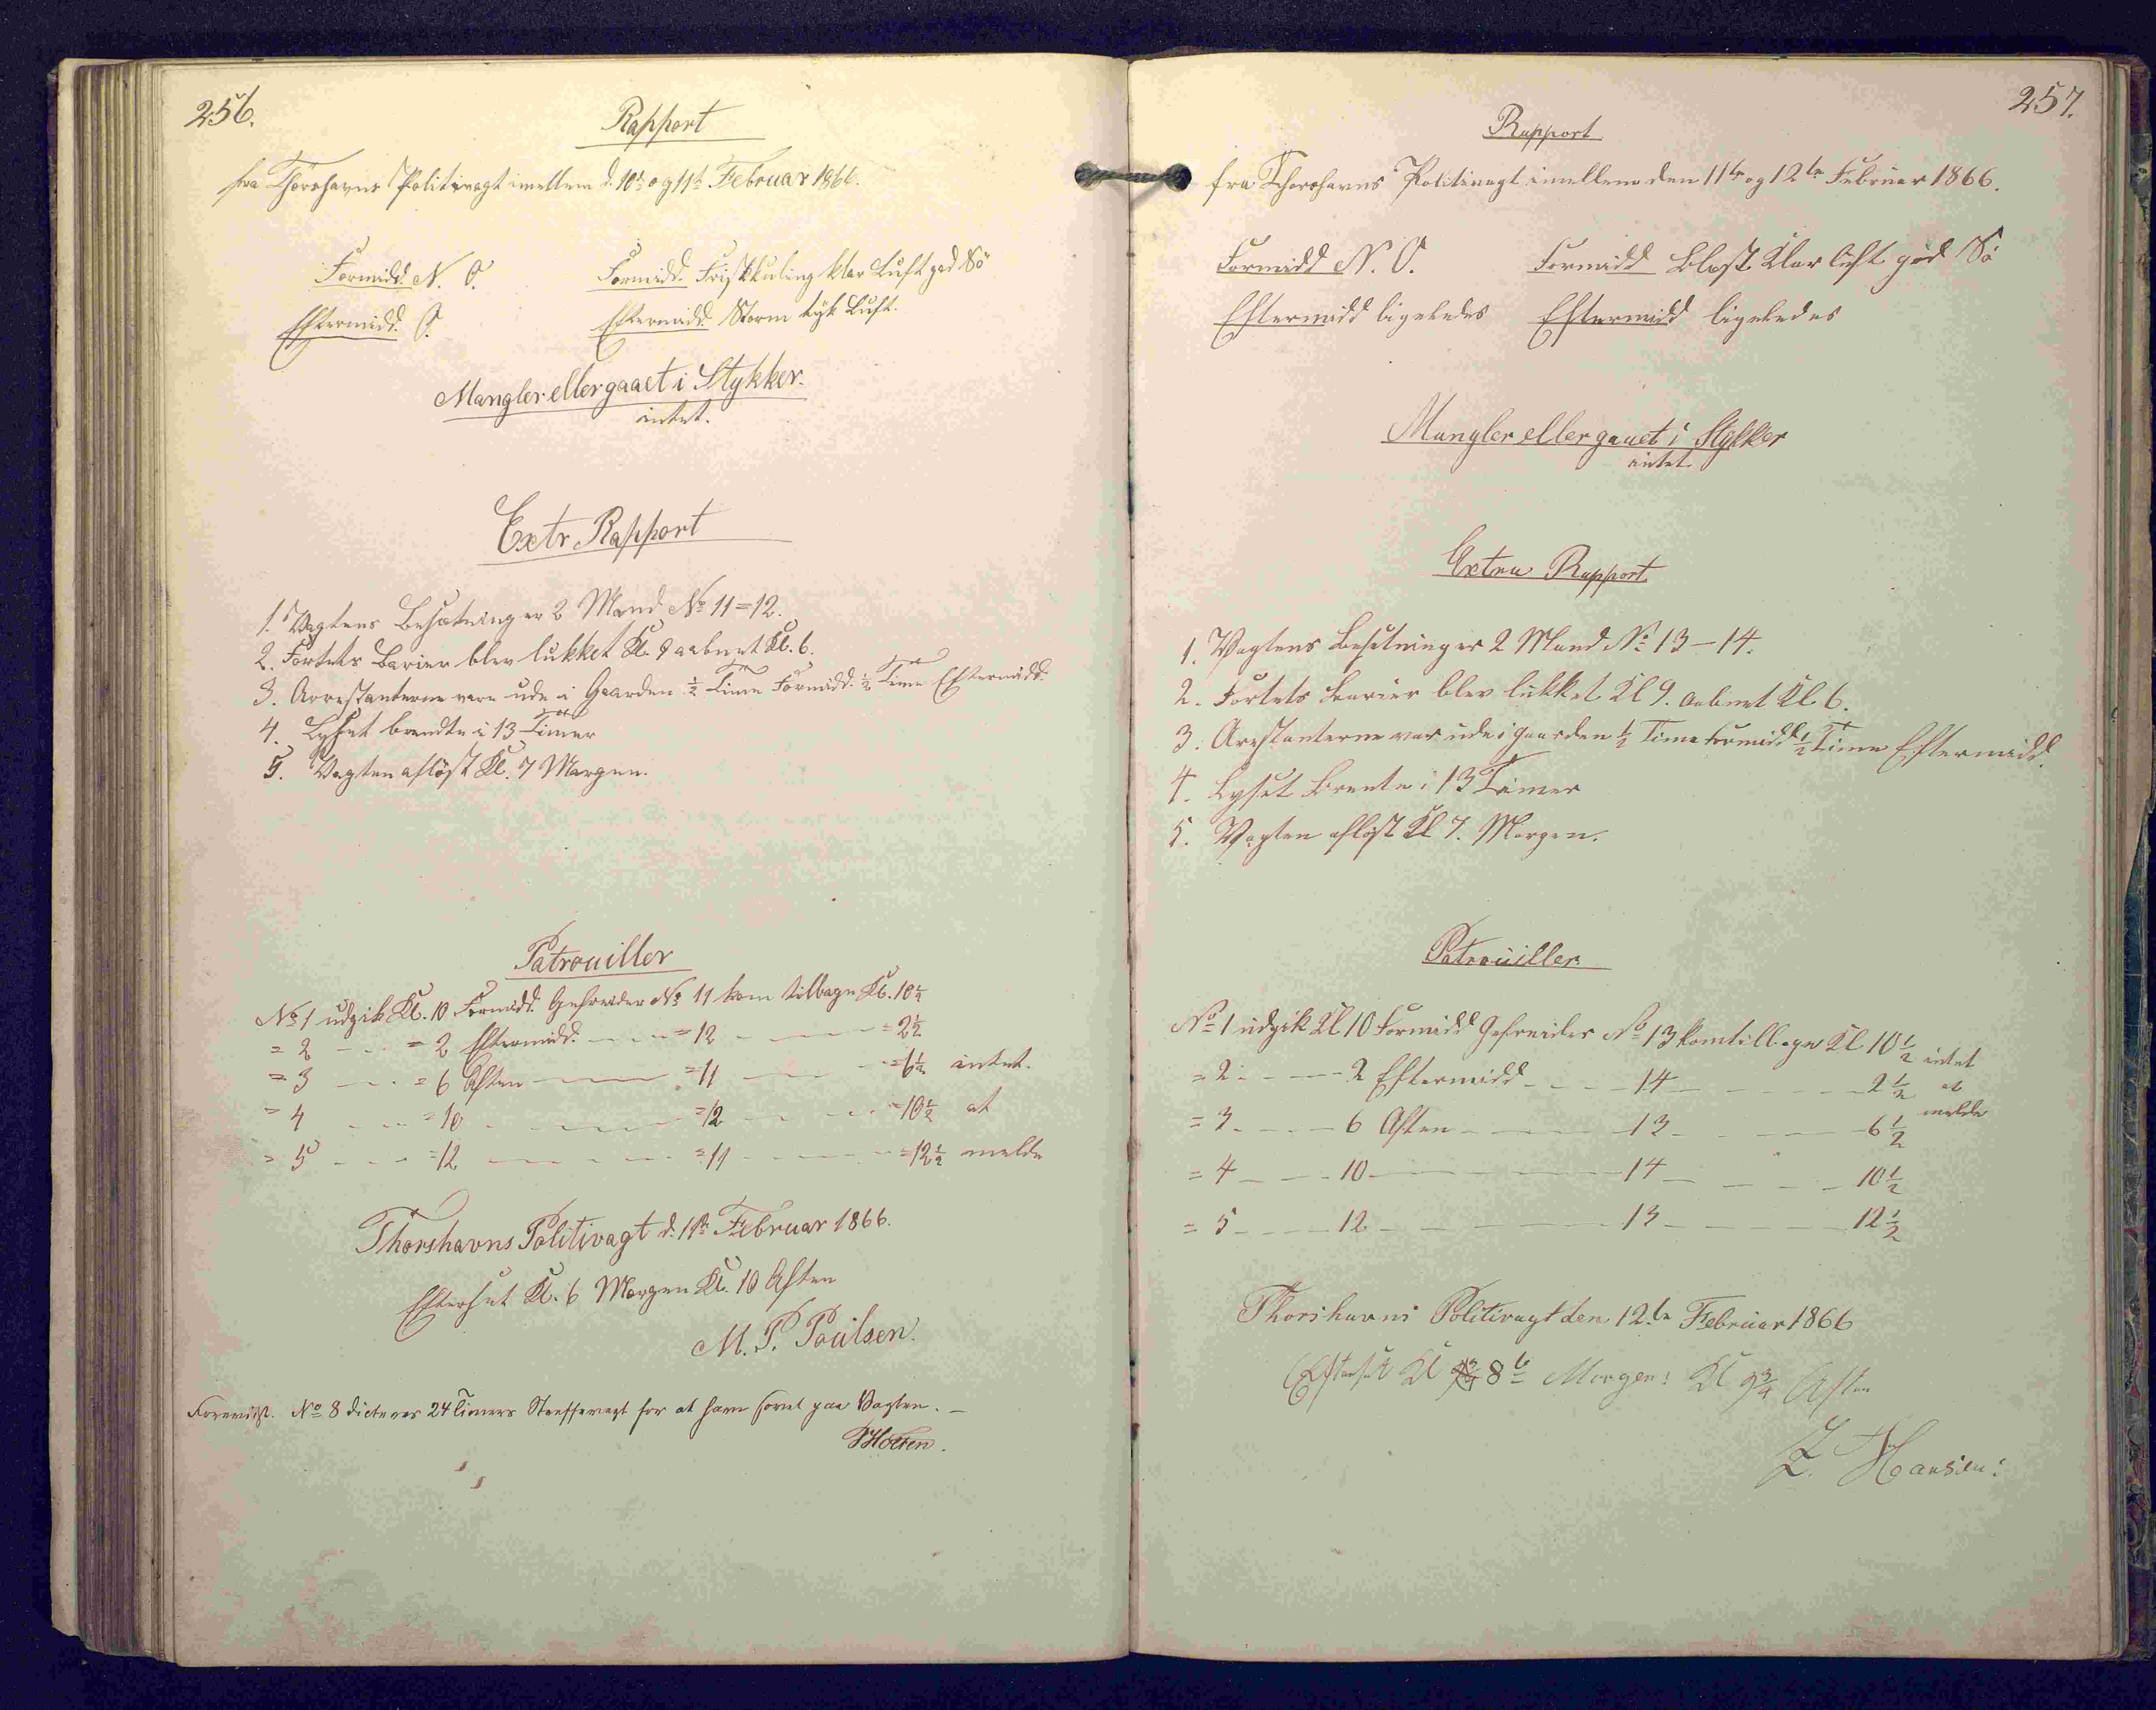 256.
Rapport
fra Thorshavns Politivagt imellem d. 10de og 11te Februar 1866.
Formidd. N. O. Formidd. Friskkuling klar Luft god Sö
Eftermidd. O. Eftermidd. Storm tyk Luft.
Mangler eller gaaet i Stykker.
intet.
Extr Rapport
1. Vagtens Besætning er 2 Mand No 11=12.
2. Fortets Barier blev lukket Kl. 9 aabnet Kl. 6.
3. Arrestanterne vare ude i Gaarden ½ Time Formidd. ½ Time Eftermidd.
4. Lyset brendte i 13 Timer
5. Vagten aflöst Kl. 7 Morgen.
Patrouiller
No 1 udgik Kl. 10 Formidd. Gefreider No 11 kom tilbage Kl. 10½
= 2 - - = 2 Eftermidd. - - = 12 - - = 2½
= 3 - - = 6 Aften - - = 11 - - = 6½ intet.
= 4 - - = 10 - - = 12 - - = 10½ at
= 5 - - = 12 - - = 11 - - = 12½ melde
Thorshavns Politivagt d. 11te Februar 1866.
Efterset Kl. 6 Morgen Kl. 10 Aften
M. P. Poulsen.
No 8 dicteres 24 Timers Straffevagt for at have sovet paa Vagten. -
HHolten.
257.
Rapport
fra Thorshavns Politivagt imellem den 11te og 12te Februar 1866.
Formidd N. O. Formidd Blæst Klar luft god Sö
Eftermidd ligeledes Eftermidd ligeledes
Mangler eller gaaet i Stykker
intet
Extra Rapport
1. Vagtens Besetning er 2 Mand No 13-14.
2. Fortets Barier blev lukket Kl 9. aabnet Kl 6.
3. Arestanterne var ude i gaarden ½ Time formidd ½ Time Eftermidd.
4. Lyset Brente i 13 Timer
5. Vagten aflöst Kl 7. Morgen.
Patrouiller
No 1 udgik Kl 10 Formidd Gefreider No 13 kom tillbage Kl 10½ intet
= 2 - - 2 Eftermidd - - 14 - - 2½ at
= 3 - - 6 Aften - - 13 - - 6½ melde
= 4 - - 10 - - 14 - - 10½
= 5 - - 12 - - 13 - - 12½
Thorshavns Politivagt den 12te Februar 1866
Efterset Kl 8 Morgen: Kl 9¾ Aften
Z. Hansen: